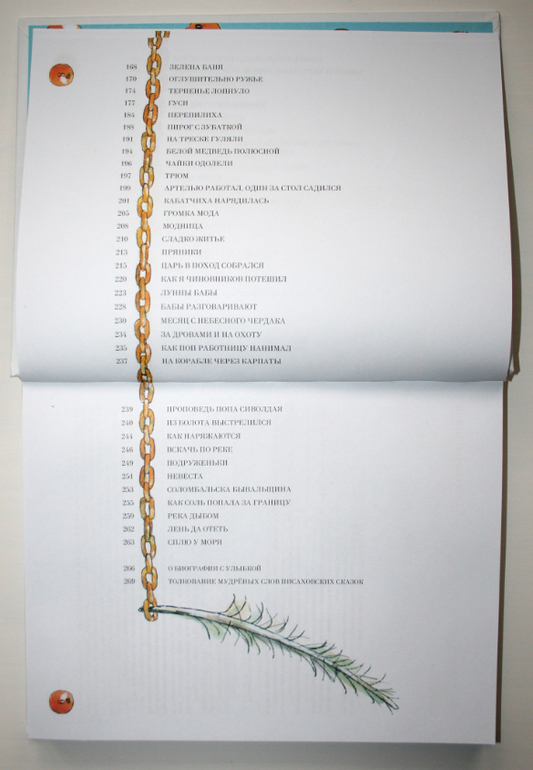 168 ЗЕЛЕНА БАНЯ
170 ОГЛУШИТЕЛЬНО РУЖЬЕ
174 ТЕРПЕНЬЕ ЛОПНУЛО
177 ГУСИ
184 ПЕРЕПИЛИХА
188 ПИРОГ С ЗУБАТКОЙ
191 НА ТРЕСКЕ ГУЛЯЛИ
194 БЕЛОЙ МЕДВЕДЬ ПОЛЮСНОЙ
196 ЧАЙКИ ОДОЛЕЛИ
197 ТРЮМ
199 АРТЕЛЬЮ РАБОТАЛ, ОДИН ЗА СТОЛ САДИЛСЯ
201 КАБАТЧИХА НАРЯДИЛАСЬ
205 ГРОМКА МОДА
208 МОДНИЦА
210 СЛАДКО ЖИТЬЕ
213 ПРЯНИКИ
215 ЦАРЬ В ПОХОД СОБРАЛСЯ
220 КАК Я ЧИНОВНИКОВ ПОТЕШИЛ
223 ЛУННЫ БАБЫ
228 БАБЫ РАЗГОВАРИВАЮТ
230 МЕСЯЦ С НЕБЕСНОГО ЧЕРДАКА
234 ЗА ДРОВАМИ И НА ОХОТУ
235 КАК ПОП РАБОТНИЦУ НАНИМАЛ
237 НА КОРАБЛЕ ЧЕРЕЗ КАРПАТЫ
239 ПРОПОВЕДЬ ПОПА СИВОЛДАЯ
240 ИЗ БОЛОТА ВЫСТРЕЛИЛСЯ
244 КАК НАРЯЖАЮТСЯ
246 ВСКАЧЬ ПО РЕКЕ
249 ПОДРУЖЕНЬКИ
251 НЕВЕСТА
253 СОЛОМБАЛЬСКА БЫВАЛЬЩИНА
255 КАК СОЛЬ ПОПАЛА ЗА ГРАНИЦУ
259 РЕКА ДЫБОМ
262 ЛЕНЬ ДА ОТЕТЬ
263 СПЛЮ У МОРЯ
266 О БИОГРАФИИ С УЛЫБКОЙ
269 ТОЛКОВАНИЕ МУДРЁНЫХ СЛОВ ПИСАХОВСКИХ СКАЗОК